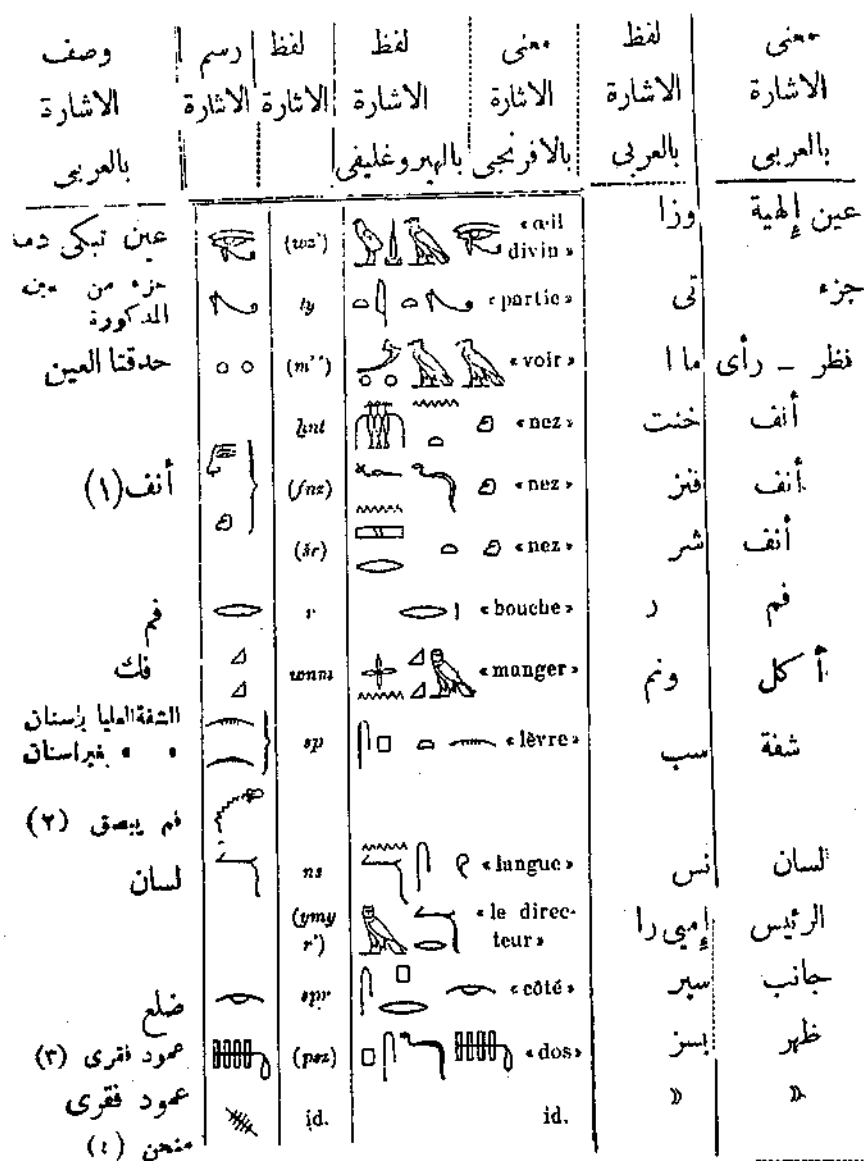 معنى الاشارة بالعربى | لفظ الاشارة بالعربى | معنى الاشارة بالافرنجى | لفظ الاشارة بالهيروغليفى | لفظ الاشارة | رسم الاشارة | وصف الاشارة بالعربى
عين إلهية | وزا | «œil divin» | (wz') | عين تبكى
جزء | تى | «partie» | ty | جزء من المذكورة
نظر - رأى | ما ا | «voir» | (m'') | حدقتا العين
أنف | خنت | «nez» | ḫnt
أنف | فنز | «nez» | (fnz) | أنف (١)
أنف | شر | «nez» | (šr)
فم | ر | «bouche» | r | فم
أكل | ونم | «manger» | wnm | فك
شفة | سب | «lèvre» | sp | الشفة العليا بإسنان
« « بغير اسنان
فم يبصق (٢)
لسان | نس | «langue» | ns | لسان
الرئيس | إمى را | «le directeur» | (ymy r')
جانب | سبر | «côté» | spr | ضلع
ظهر | بسز | «dos» | (psz) | عمود فقرى (٣)
« | « | id. | id. | عمود فقرى منحن (٤)